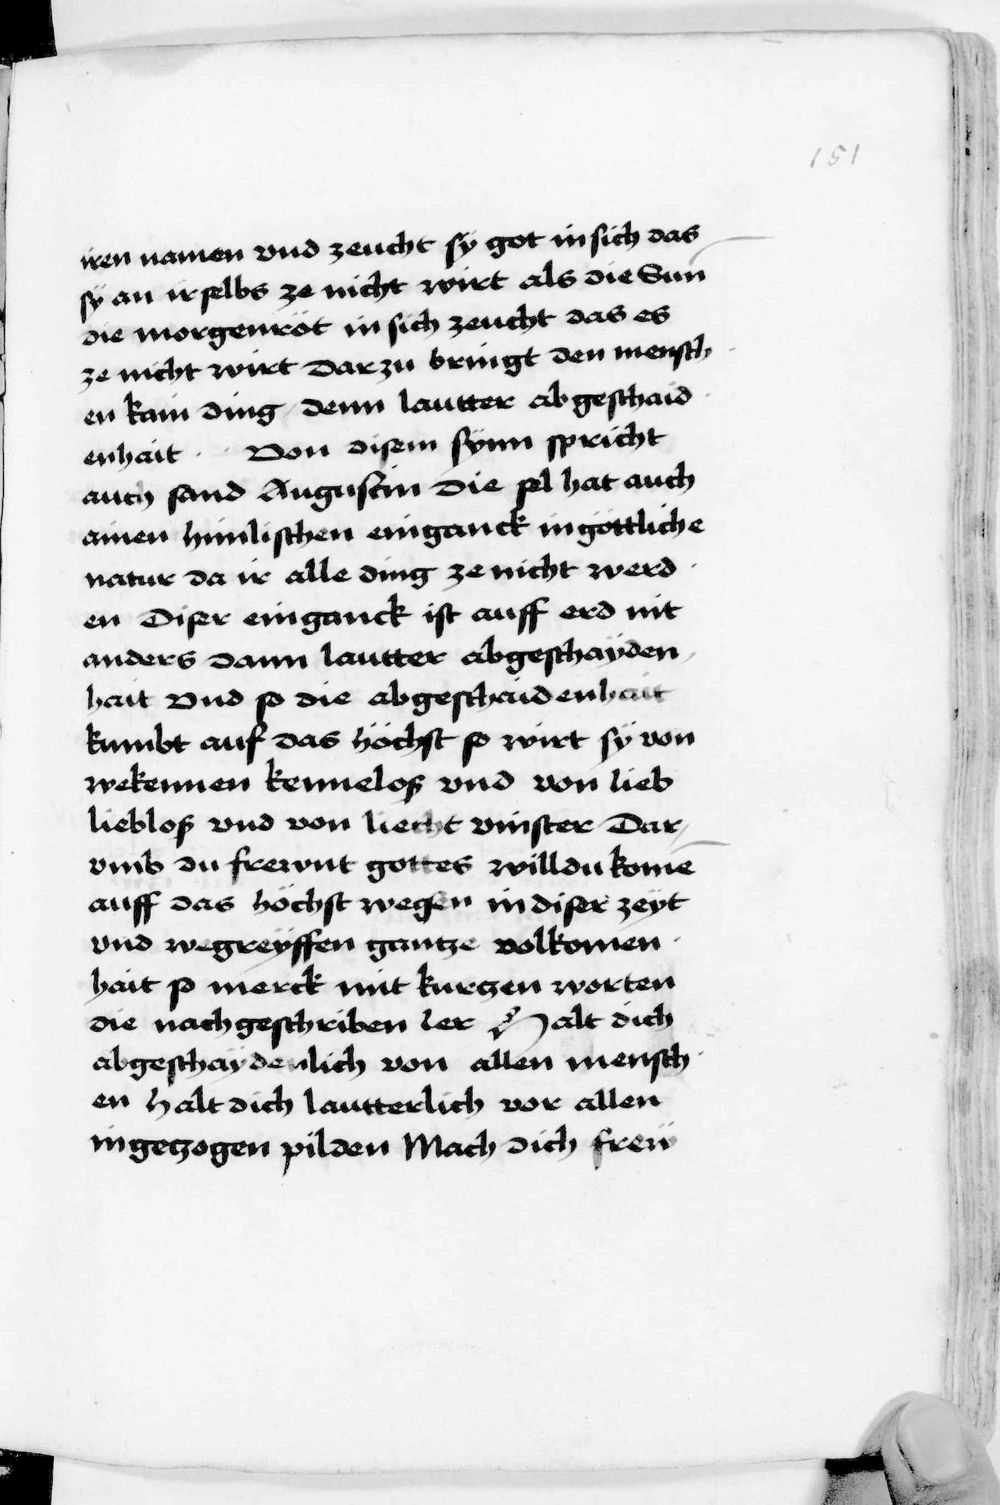 151
iren namen vnd zeucht sÿ got in sich das
sÿ an ir selbs ze nicht wirt als die Sun
die morgenröt in sich zeucht das es
ze nicht wirt Darzu bringt den mensch
en kain ding denn lautter abgeschaid
enhait · Von disem sÿnn spricht
auch sand Augustin Die sel hat auch
ainen himlischen eingan̄ck in göttliche
natur da ir alle ding ze nicht werd
en Diser eingan̄ck ist auff erd nit
anders dann lautter abgeschaÿden
hait Vnd so die abgeschaidenhait
kumbt auf das höchst so wirt sÿ von
wekennen kennelos vnd von lieb
lieblos vnd von liecht vinster Dar
vmb du frewnt gottes willdu kome
auff das höchst wesen in diser zeÿt
vnd wegreÿffen gantze volkomen
hait so merck mit kurczen worten
die nachgeschriben ler Halt dich
abgeschaÿdenlich von allen mensch
en halt dich lautterlich vor allen
ingeczogen pilden Mach dich freÿ